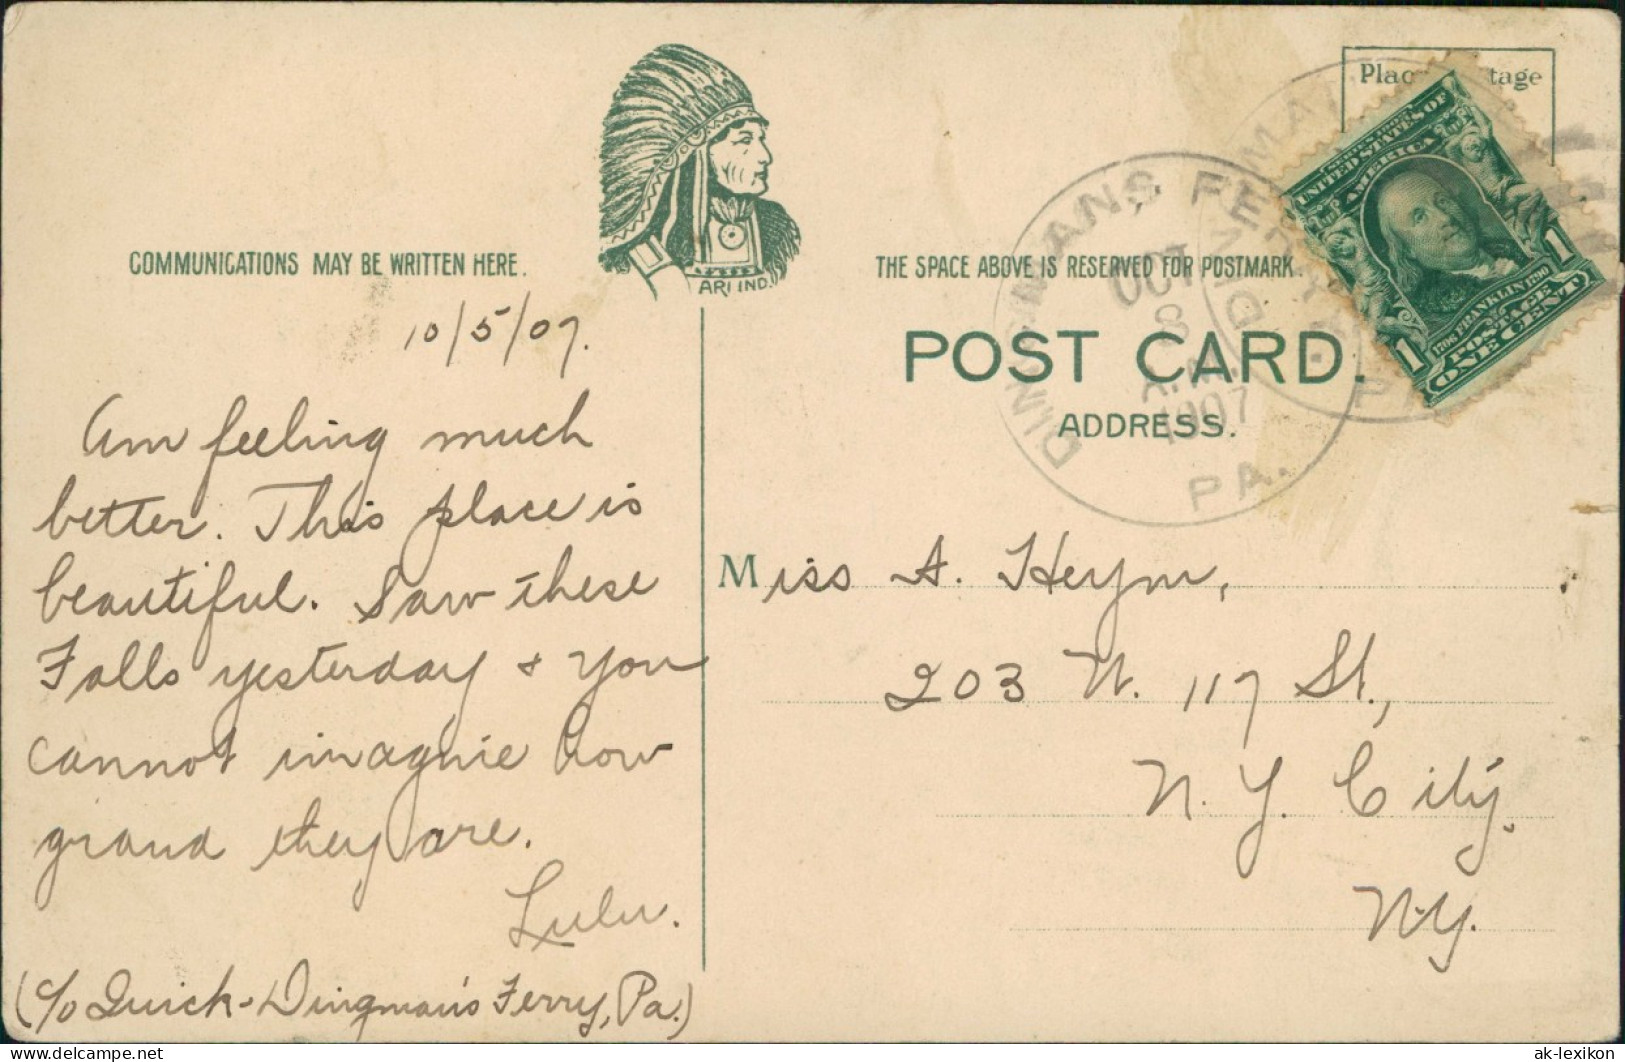 COMMUNICATIONS MAY BE WRITTEN HERE.
ARI IND.
10/5/07.
Am feeling much
better. This place is
beautiful. Saw these
Falls yesterday & you
cannot imagnie how
grand they are.
Lulu.
(c/o Quick-Dingman's Ferry, Pa.)
THE SPACE ABOVE IS RESERVED FOR POSTMARK.
POST CARD.
ADDRESS.
DINGMANS FERRY
OCT
8
A.M.
1907
PA.
UNITED STATES OF
AMERICA
1706 FRANKLIN 1790
POSTAGE
1 ONE CENT 1
Miss A. Heym,
203 W. 117 St.,
N.Y. City,
N.Y.
delcampe.net
ak-lexikon